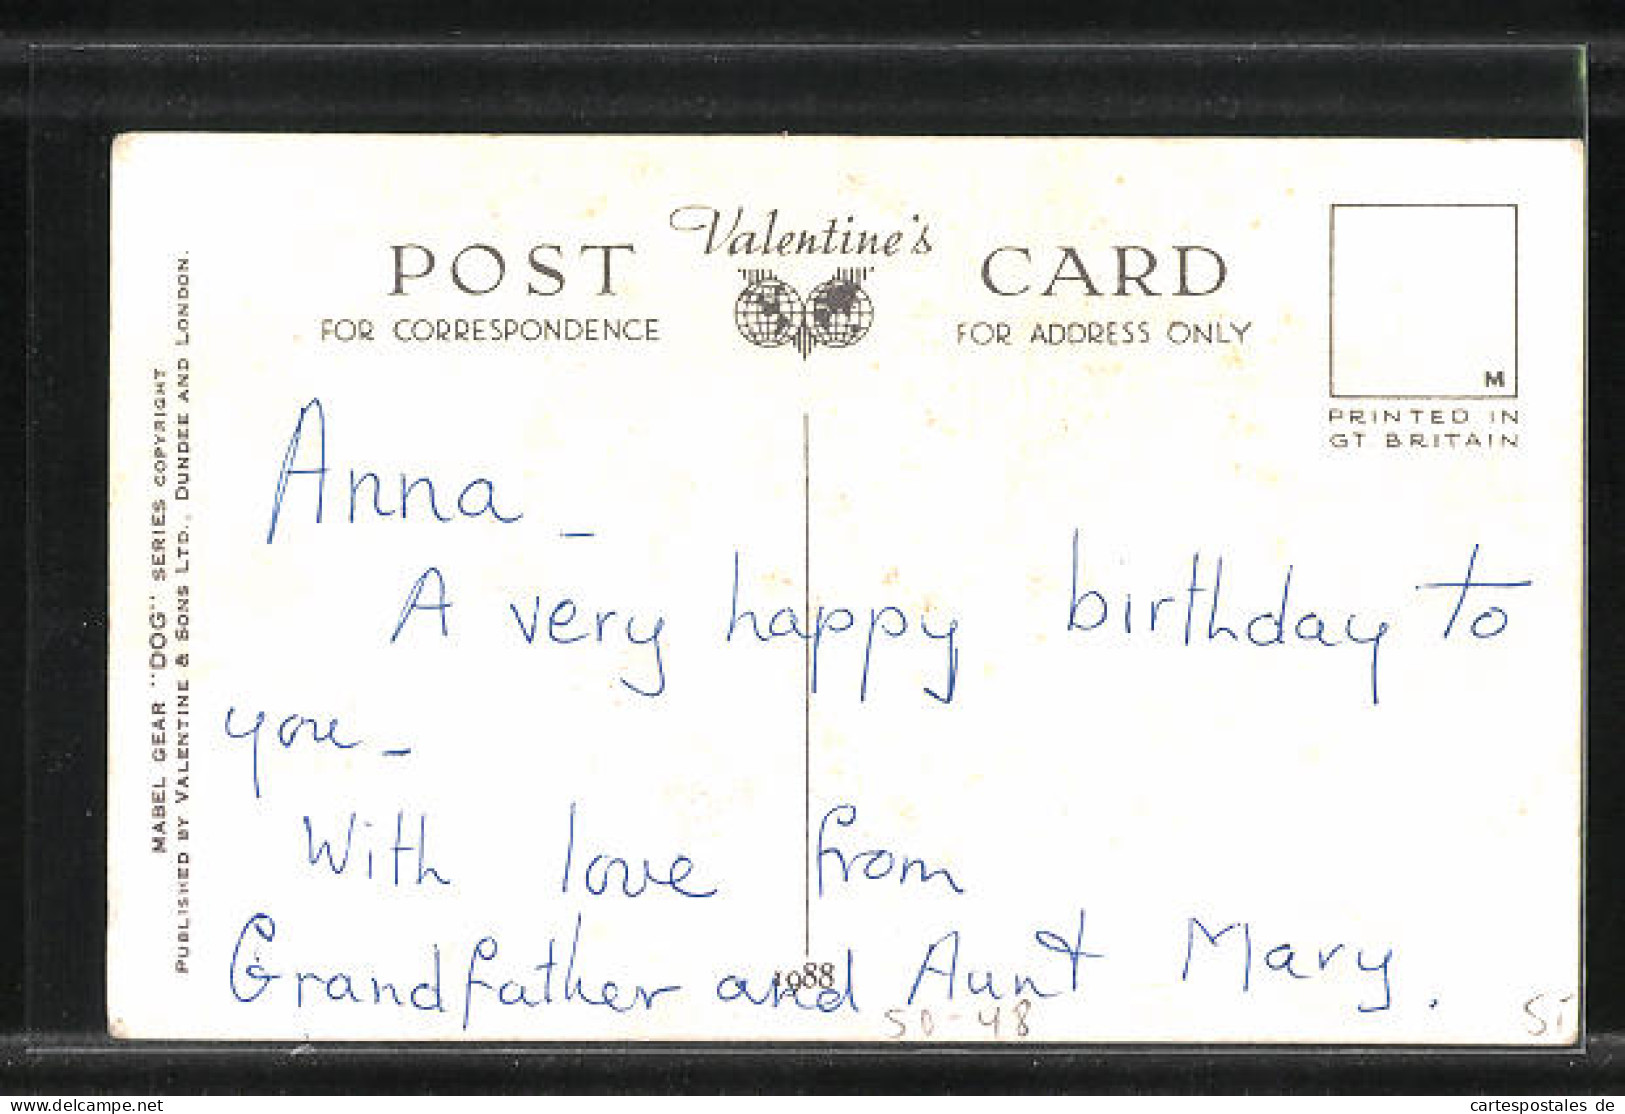 Valentine's
POST CARD
FOR CORRESPONDENCE
FOR ADDRESS ONLY
M
PRINTED IN
GT BRITAIN
MABEL GEAR "DOG" SERIES COPYRIGHT
PUBLISHED BY VALENTINE & SONS LTD., DUNDEE AND LONDON.
Anna -
A very happy birthday to
you -
With love from
Grandfather and Aunt Mary.
1988
50-48
Si
the-philately.com
cartespostales de